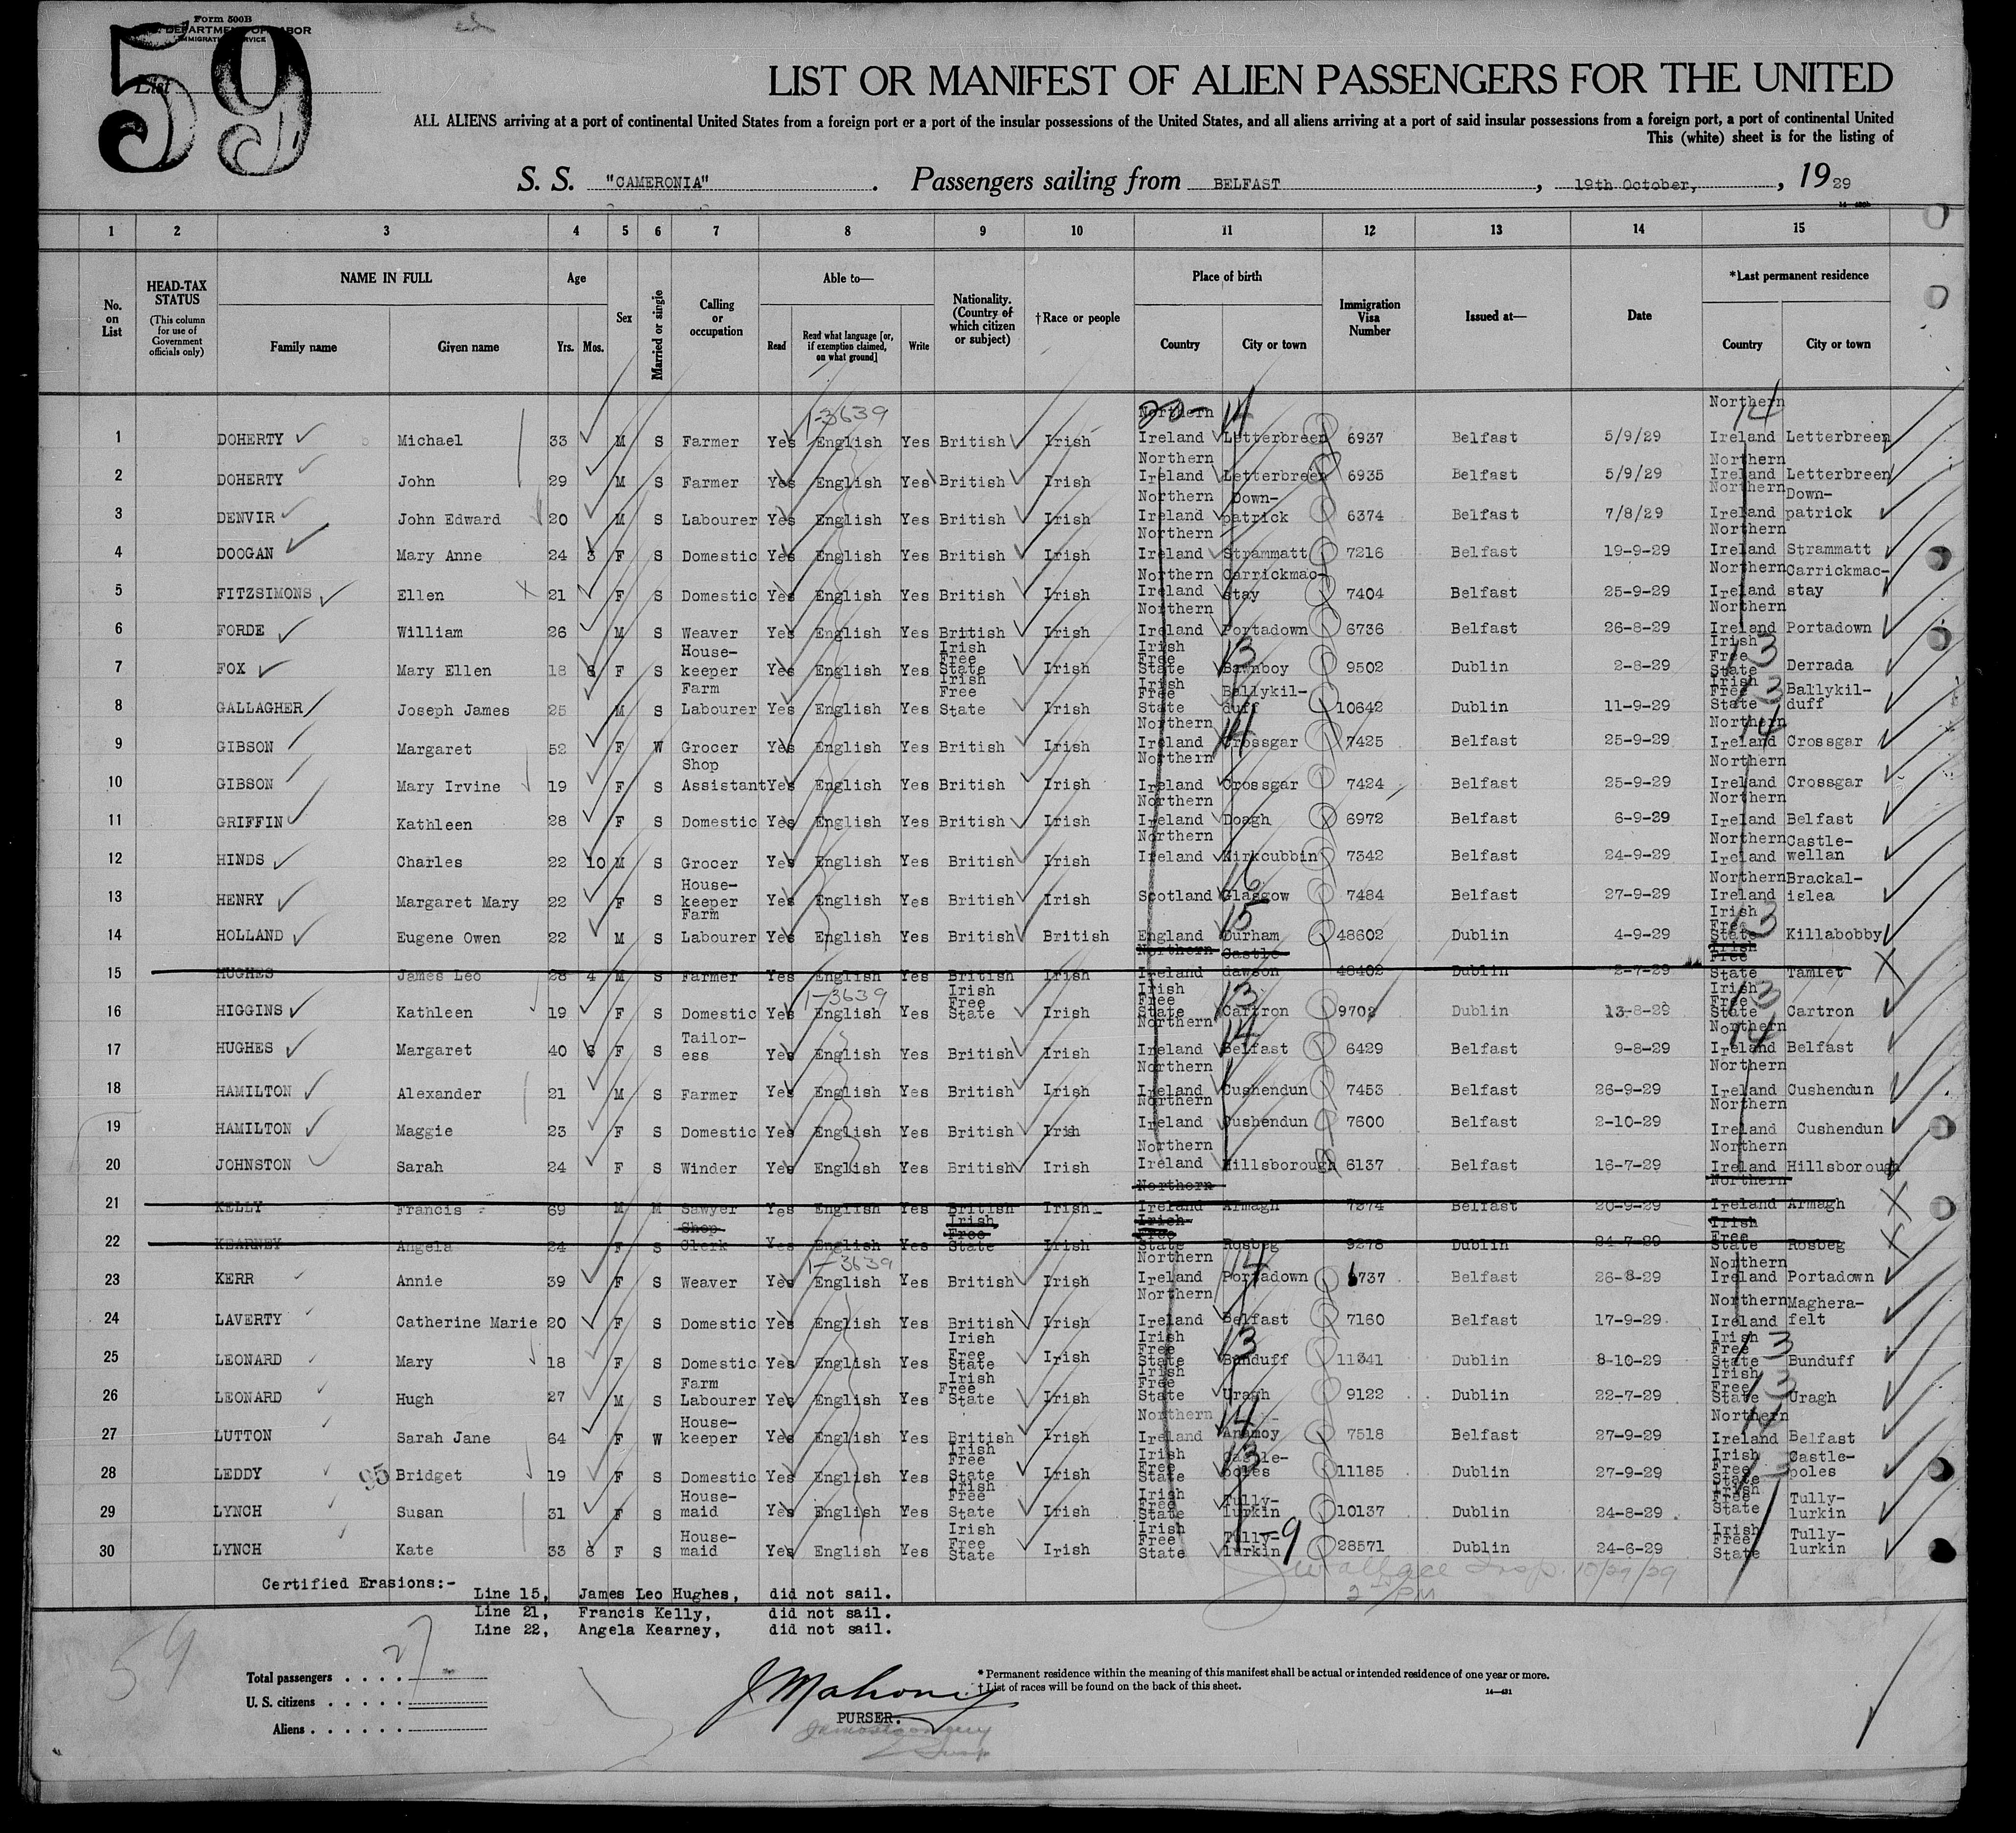 Form 500B
U. S. DEPARTMENT OF LABOR
IMMIGRATION SERVICE
List
59
LIST OR MANIFEST OF ALIEN PASSENGERS FOR THE UNITED
ALL ALIENS arriving at a port of continental United States from a foreign port or a port of the insular possessions of the United States, and all aliens arriving at a port of said insular possessions from a foreign port, a port of continental United
This (white) sheet is for the listing of
S. S. "CAMERONIA" . Passengers sailing from BELFAST , 19th October, , 1929
1 2 3 4 5 6 7 8 9 10 11 12 13 14 15
No. on List HEAD-TAX STATUS (This column for use of Government officials only) NAME IN FULL Family name Given name Age Yrs. Mos. Sex Married or single Calling or occupation Able to— Read Read what language [or, if exemption claimed, on what ground] Write Nationality. (Country of which citizen or subject) †Race or people Place of birth Country City or town Immigration Visa Number Issued at— Date *Last permanent residence Country City or town
1-3639
1 DOHERTY Michael 33 M S Farmer Yes English Yes British Irish Northern Ireland Letterbreen 6937 Belfast 5/9/29 Northern Ireland Letterbreen
2 DOHERTY John 29 M S Farmer Yes English Yes British Irish Northern Ireland Letterbreen 6935 Belfast 5/9/29 Northern Ireland Letterbreen
3 DENVIR John Edward 20 M S Labourer Yes English Yes British Irish Northern Ireland Down-patrick 6374 Belfast 7/8/29 Northern Ireland Down-patrick
4 DOOGAN Mary Anne 24 3 F S Domestic Yes English Yes British Irish Northern Ireland Strammatt 7216 Belfast 19-9-29 Northern Ireland Strammatt
5 FITZSIMONS Ellen 21 F S Domestic Yes English Yes British Irish Northern Ireland Carrickmac-stay 7404 Belfast 25-9-29 Northern Ireland Carrickmac-stay
6 FORDE William 26 M S Weaver Yes English Yes British Irish Northern Ireland Portadown 6736 Belfast 26-8-29 Northern Ireland Portadown
7 FOX Mary Ellen 18 F S House-keeper Yes English Yes Irish Free State Irish Irish Free State Bawnboy 9502 Dublin 2-8-29 Irish Free State Derrada
8 GALLAGHER Joseph James 25 M S Farm Labourer Yes English Yes Irish Free State Irish Irish Free State Ballykil-duff 10642 Dublin 11-9-29 Irish Free State Ballykil-duff
9 GIBSON Margaret 52 F W Grocer Yes English Yes British Irish Northern Ireland Crossgar 7425 Belfast 25-9-29 Northern Ireland Crossgar
10 GIBSON Mary Irvine 19 F S Shop Assistant Yes English Yes British Irish Northern Ireland Crossgar 7424 Belfast 25-9-29 Northern Ireland Crossgar
11 GRIFFIN Kathleen 28 F S Domestic Yes English Yes British Irish Northern Ireland Doagh 6972 Belfast 6-9-29 Northern Ireland Belfast
12 HINDS Charles 22 10 M S Grocer Yes English Yes British Irish Northern Ireland Kirkcubbin 7342 Belfast 24-9-29 Northern Ireland Castle-wellan
13 HENRY Margaret Mary 22 F S House-keeper Yes English Yes British Irish Scotland Glasgow 7484 Belfast 27-9-29 Northern Ireland Brackal-islea
14 HOLLAND Eugene Owen 22 M S Farm Labourer Yes English Yes British British England Durham 48602 Dublin 4-9-29 Irish Free State Killabobby
15 HUGHES James Leo 28 4 M S Farmer Yes English Yes British Irish Northern Ireland Castle-dawson 48402 Dublin 2-7-29 Irish Free State Tamlet
1-3639
16 HIGGINS Kathleen 19 F S Domestic Yes English Yes Irish Free State Irish Irish Free State Cartron 9702 Dublin 13-8-29 Irish Free State Cartron
17 HUGHES Margaret 40 F S Tailor-ess Yes English Yes British Irish Northern Ireland Belfast 6429 Belfast 9-8-29 Northern Ireland Belfast
18 HAMILTON Alexander 21 M S Farmer Yes English Yes British Irish Northern Ireland Cushendun 7453 Belfast 26-9-29 Northern Ireland Cushendun
19 HAMILTON Maggie 23 F S Domestic Yes English Yes British Irish Northern Ireland Cushendun 7600 Belfast 2-10-29 Northern Ireland Cushendun
20 JOHNSTON Sarah 24 F S Winder Yes English Yes British Irish Northern Ireland Hillsborough 6137 Belfast 16-7-29 Northern Ireland Hillsborough
21 KELLY Francis 69 M M Sawyer Yes English Yes British Irish Northern Ireland Armagh 7274 Belfast 20-9-29 Northern Ireland Armagh
22 KEARNEY Angela 24 F S Shop Clerk Yes English Yes Irish Free State Irish Irish Free State Rosbeg 9278 Dublin 24-7-29 Irish Free State Rosbeg
1-3639
23 KERR Annie 39 F S Weaver Yes English Yes British Irish Northern Ireland Portadown 6737 Belfast 26-8-29 Northern Ireland Portadown
24 LAVERTY Catherine Marie 20 F S Domestic Yes English Yes British Irish Northern Ireland Belfast 7160 Belfast 17-9-29 Northern Ireland Maghera-felt
25 LEONARD Mary 18 F S Domestic Yes English Yes Irish Free State Irish Irish Free State Bunduff 11341 Dublin 8-10-29 Irish Free State Bunduff
26 LEONARD Hugh 27 M S Farm Labourer Yes English Yes Irish Free State Irish Irish Free State Uragh 9122 Dublin 22-7-29 Irish Free State Uragh
27 LUTTON Sarah Jane 64 F W House-keeper Yes English Yes British Irish Northern Ireland Annahoy 7518 Belfast 27-9-29 Northern Ireland Belfast
28 LEDDY 95 Bridget 19 F S Domestic Yes English Yes Irish Free State Irish Irish Free State Castle-poles 11185 Dublin 27-9-29 Irish Free State Castle-poles
29 LYNCH Susan 31 F S House-maid Yes English Yes Irish Free State Irish Irish Free State Tully-lurkin 10137 Dublin 24-8-29 Irish Free State Tully-lurkin
30 LYNCH Kate 33 6 F S House-maid Yes English Yes Irish Free State Irish Irish Free State Tully-lurkin 28571 Dublin 24-6-29 Irish Free State Tully-lurkin
Wallace Insp. 10/29/29
2 PM
Certified Erasions:-
Line 15, James Leo Hughes, did not sail.
Line 21, Francis Kelly, did not sail.
Line 22, Angela Kearney, did not sail.
59
Total passengers . . . . 27
U. S. citizens . . . . .
Aliens . . . . . .
J Mahoney
PURSER.
* Permanent residence within the meaning of this manifest shall be actual or intended residence of one year or more.
† List of races will be found on the back of this sheet.
14—431